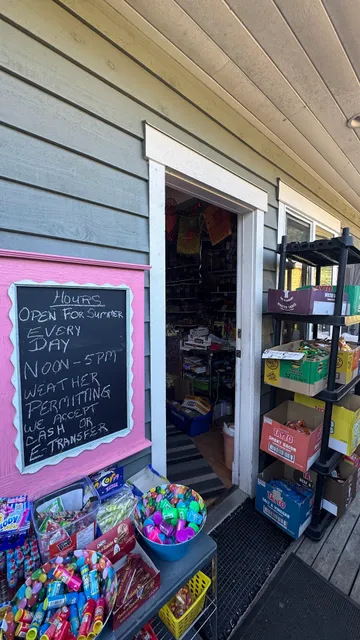 HOURS
OPEN FOR SUMMER
EVERY
DAY
NOON-5PM
WEATHER
PERMITTING
WE ACCEPT
CASH OR
E-TRANSFER